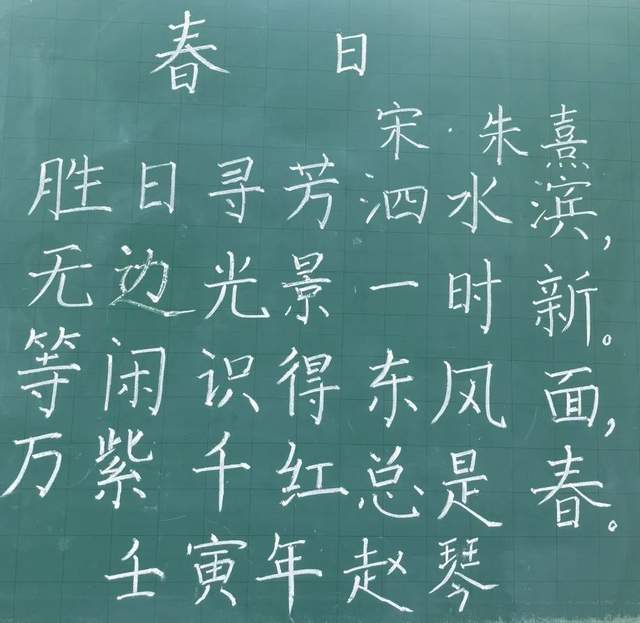 春日
宋·朱熹
胜日寻芳泗水滨，
无边光景一时新。
等闲识得东风面，
万紫千红总是春。
壬寅年赵琴